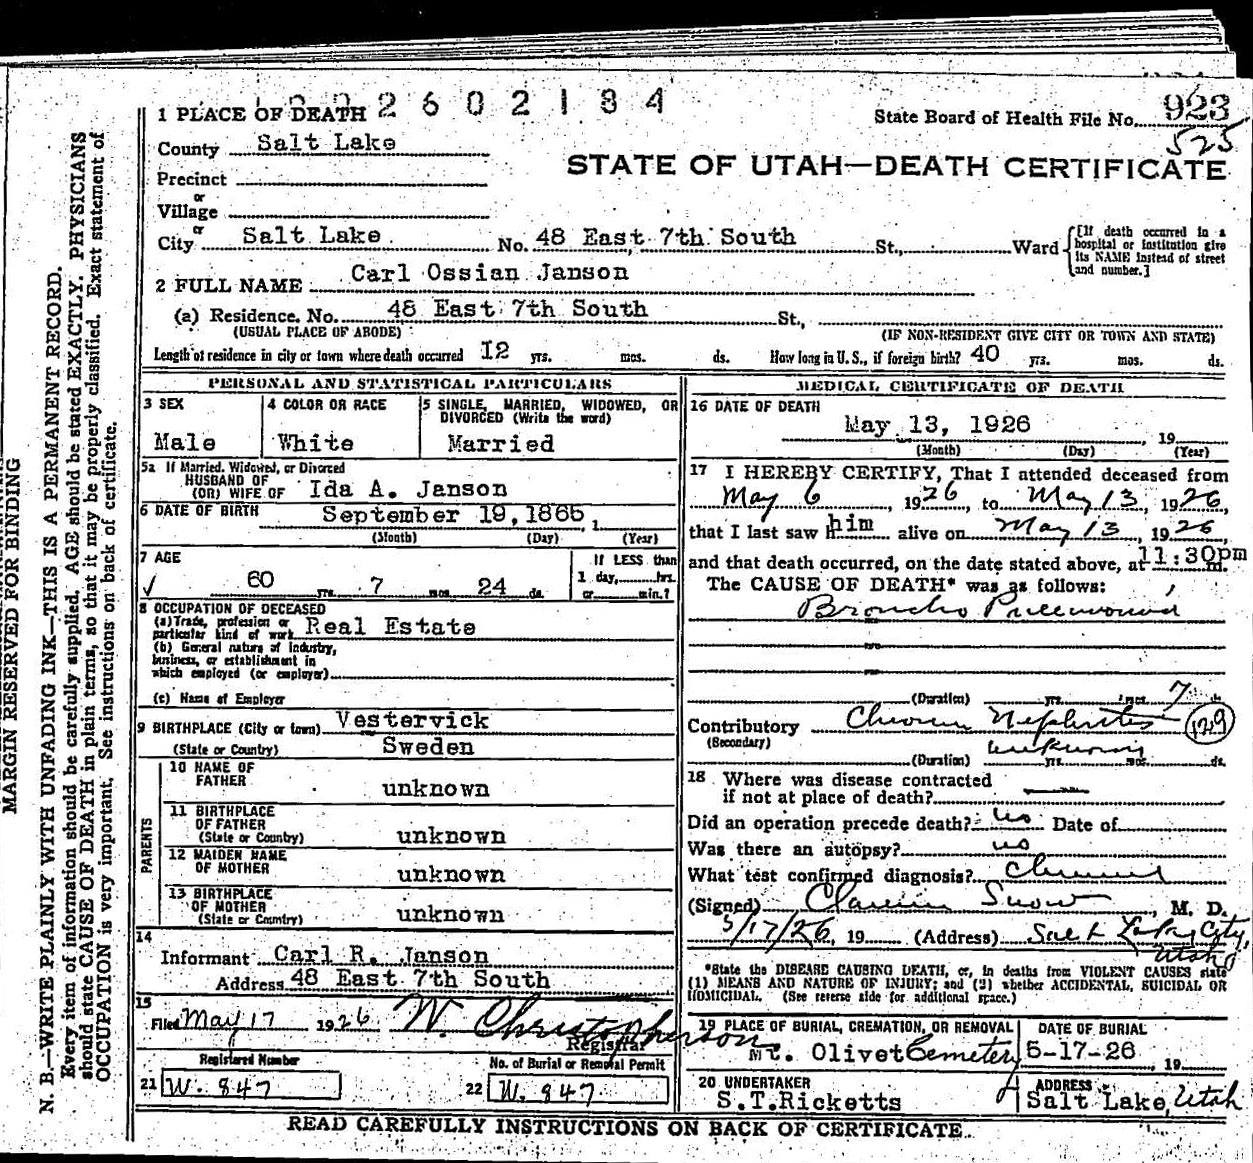 2602134
1 PLACE OF DEATH
State Board of Health File No. 923
525
County Salt Lake
STATE OF UTAH—DEATH CERTIFICATE
Precinct
or
Village
or
City Salt Lake No. 48 East 7th South St., Ward [If death occurred in a hospital or institution give its NAME instead of street and number.]
2 FULL NAME Carl Ossian Janson
(a) Residence. No. 48 East 7th South St.,
(USUAL PLACE OF ABODE) (IF NON-RESIDENT GIVE CITY OR TOWN AND STATE)
Length of residence in city or town where death occurred I2 yrs. mos. ds. How long in U. S., if foreign birth? 40 yrs. mos. ds.
PERSONAL AND STATISTICAL PARTICULARS
3 SEX
Male
4 COLOR OR RACE
White
5 SINGLE, MARRIED, WIDOWED, OR
DIVORCED (Write the word)
Married
5a If Married, Widowed, or Divorced
HUSBAND OF
(OR) WIFE OF Ida A. Janson
6 DATE OF BIRTH September 19, 1865, 1
(Month) (Day) (Year)
7 AGE
60 yrs. 7 mos. 24 ds.
If LESS than
1 day, hrs.
or min.?
8 OCCUPATION OF DECEASED
(a) Trade, profession or
particular kind of work Real Estate
(b) General nature of industry,
business, or establishment in
which employed (or employer)
(c) Name of Employer
9 BIRTHPLACE (City or town) Vestervick
(State or Country) Sweden
PARENTS
10 NAME OF
FATHER unknown
11 BIRTHPLACE
OF FATHER
(State or Country) unknown
12 MAIDEN NAME
OF MOTHER unknown
13 BIRTHPLACE
OF MOTHER
(State or Country) unknown
14
Informant Carl R. Janson
Address 48 East 7th South
15
Filed May 17 1926 W. Christopherson
Registrar
Registered Number
No. of Burial or Removal Permit
21 W. 847
22 W. 847
MEDICAL CERTIFICATE OF DEATH
16 DATE OF DEATH
May 13, 1926, 19
(Month) (Day) (Year)
17 I HEREBY CERTIFY, That I attended deceased from
May 6, 1926, to May 13, 1926,
that I last saw him alive on May 13, 1926,
and that death occurred, on the date stated above, at 11:30pm m.
The CAUSE OF DEATH* was as follows:
Broncho Pneumonia
(Duration) yrs. mos. 7 ds
Contributory Chronic Nephritis 129
(Secondary)
unknown
(Duration) yrs. mos. ds.
18 Where was disease contracted
if not at place of death?
Did an operation precede death? no Date of
Was there an autopsy? no
What test confirmed diagnosis? Clinical
(Signed) Clarence Snow, M. D.
5/17/26, 19 (Address) Salt Lake City,
Utah
*State the DISEASE CAUSING DEATH, or, in deaths from VIOLENT CAUSES state
(1) MEANS AND NATURE OF INJURY; and (2) whether ACCIDENTAL, SUICIDAL OR
HOMICIDAL. (See reverse side for additional space.)
19 PLACE OF BURIAL, CREMATION, OR REMOVAL
Mt. Olivet Cemetery
DATE OF BURIAL
5-17-26, 19
20 UNDERTAKER
S.T.Ricketts
ADDRESS
Salt Lake, Utah
READ CAREFULLY INSTRUCTIONS ON BACK OF CERTIFICATE
MARGIN RESERVED FOR BINDING
N. B.—WRITE PLAINLY WITH UNFADING INK—THIS IS A PERMANENT RECORD.
Every item of information should be carefully supplied. AGE should be stated EXACTLY. PHYSICIANS
should state CAUSE OF DEATH in plain terms, so that it may be properly classified. Exact statement of
OCCUPATION is very important. See instructions on back of certificate.